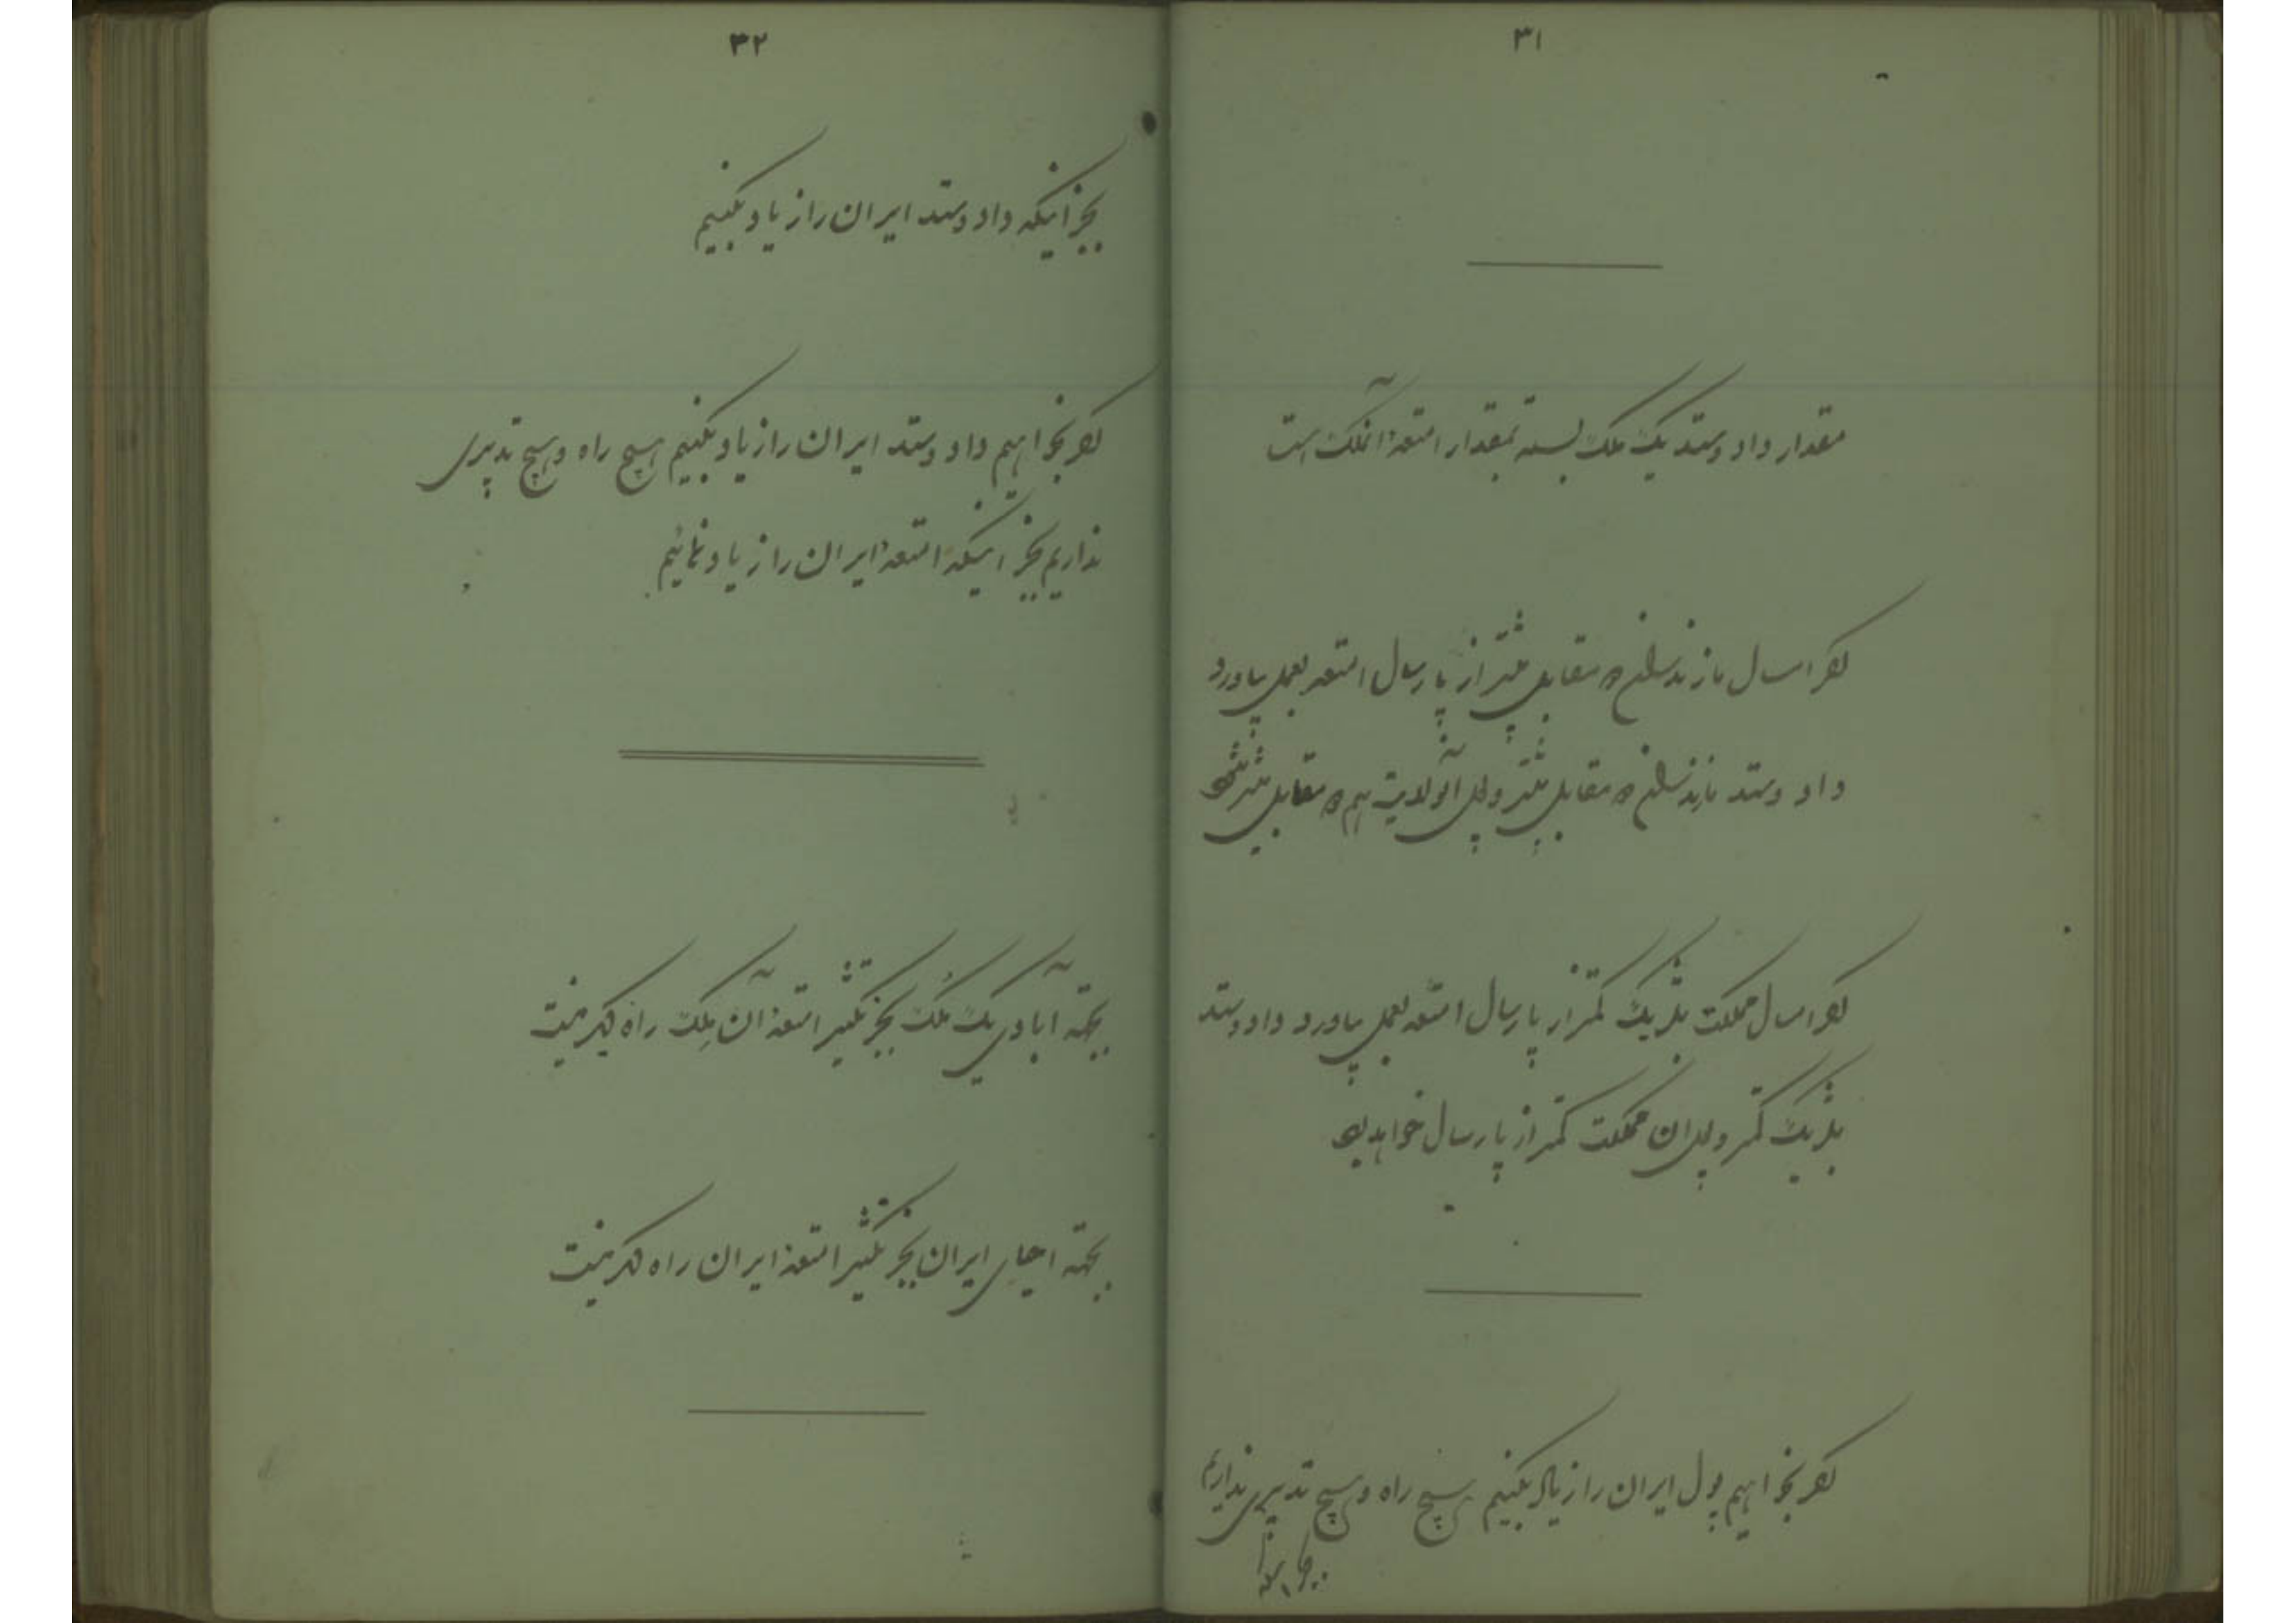 ۳۱
مقدار داد و ستد یک ملک بسته بمقدار امتعهٔ آنملک است
اگر امسال مازندران ده مقابل بیشتر از پارسال امتعه بعمل بیاورد
داد و ستد مازندران ده مقابل بیشتر و پول آنولایت هم ده مقابل بیشتر میشود
اگر امسال مملکت بلژیک کمتر از پارسال امتعه بعمل بیاورد داد و ستد
بلژیک کمتر و پول آن مملکت کمتر از پارسال خواهد بود
اگر بخواهیم پول ایران را زیاد بکنیم هیچ راه و هیچ تدبیری نداریم
بجز اینکه
۳۲
بجز اینکه داد و ستد ایران را زیاد بکنیم
اگر بخواهیم داد و ستد ایران را زیاد بکنیم هیچ راه و هیچ تدبیری
نداریم بجز اینکه امتعهٔ ایران را زیاد نمائیم
بجهة آبادی یک ملک بجز تکثیر امتعهٔ آن ملک راه دیگر نیست
بجهة احیای ایران بجز تکثیر امتعهٔ ایران راه دیگر نیست